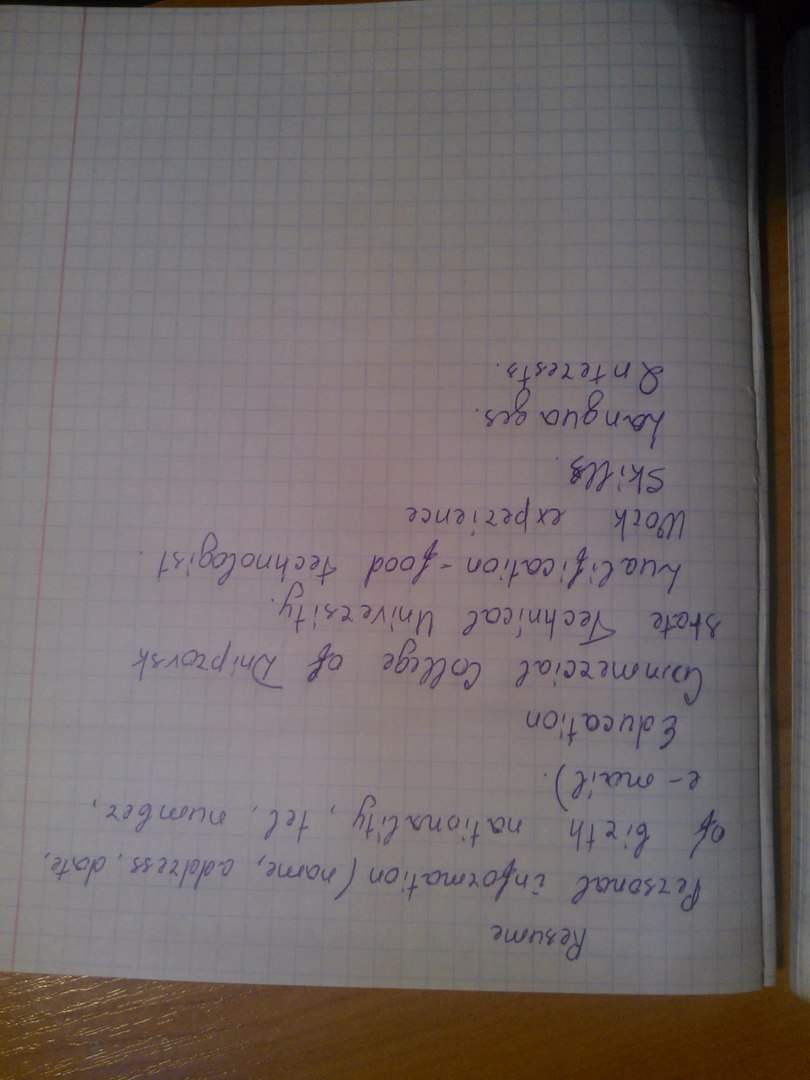 Resume
Personal information (name, address, date,
of birth nationality, tel, number,
e-mail).
Education
Commercial College of Dniprovsk
State Technical University.
Lualification - food technologist.
Work experience
Skills.
Languages.
Interests.